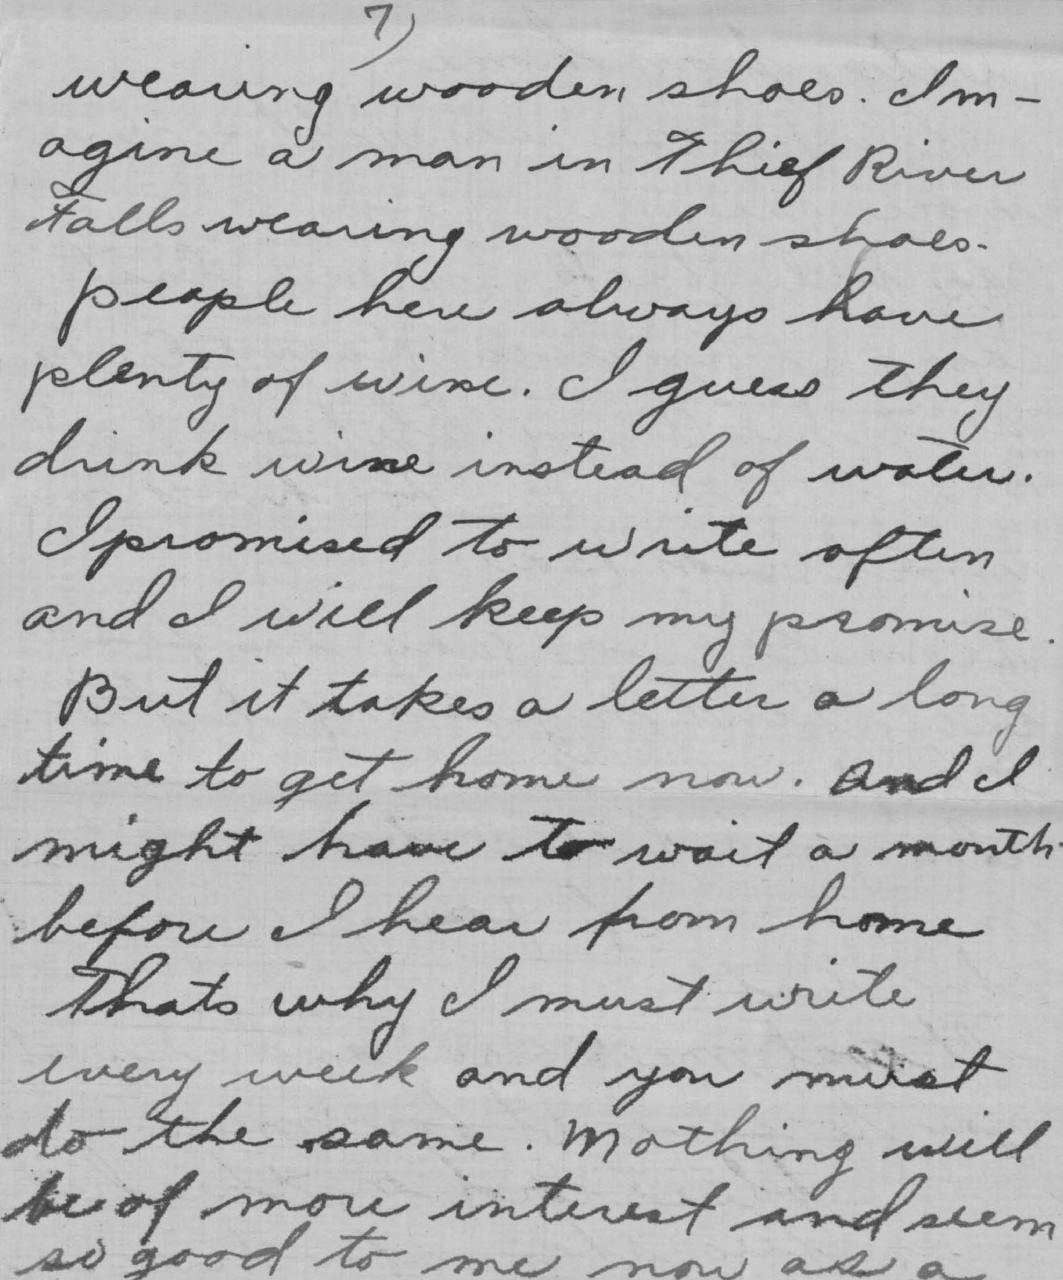 7)
wearing wooden shoes. Im-
agine a man in Thief River
Falls wearing wooden shoes.
people here always have
plenty of wine. I guess they
drink wine instead of water.
I promised to write often
and I will keep my promise.
But it takes a letter a long
time to get home now. And I
might have to wait a month
before I hear from home
Thats why I must write
every week and you must
do the same. Nothing will
be of more interest and seem
so good to me now as a